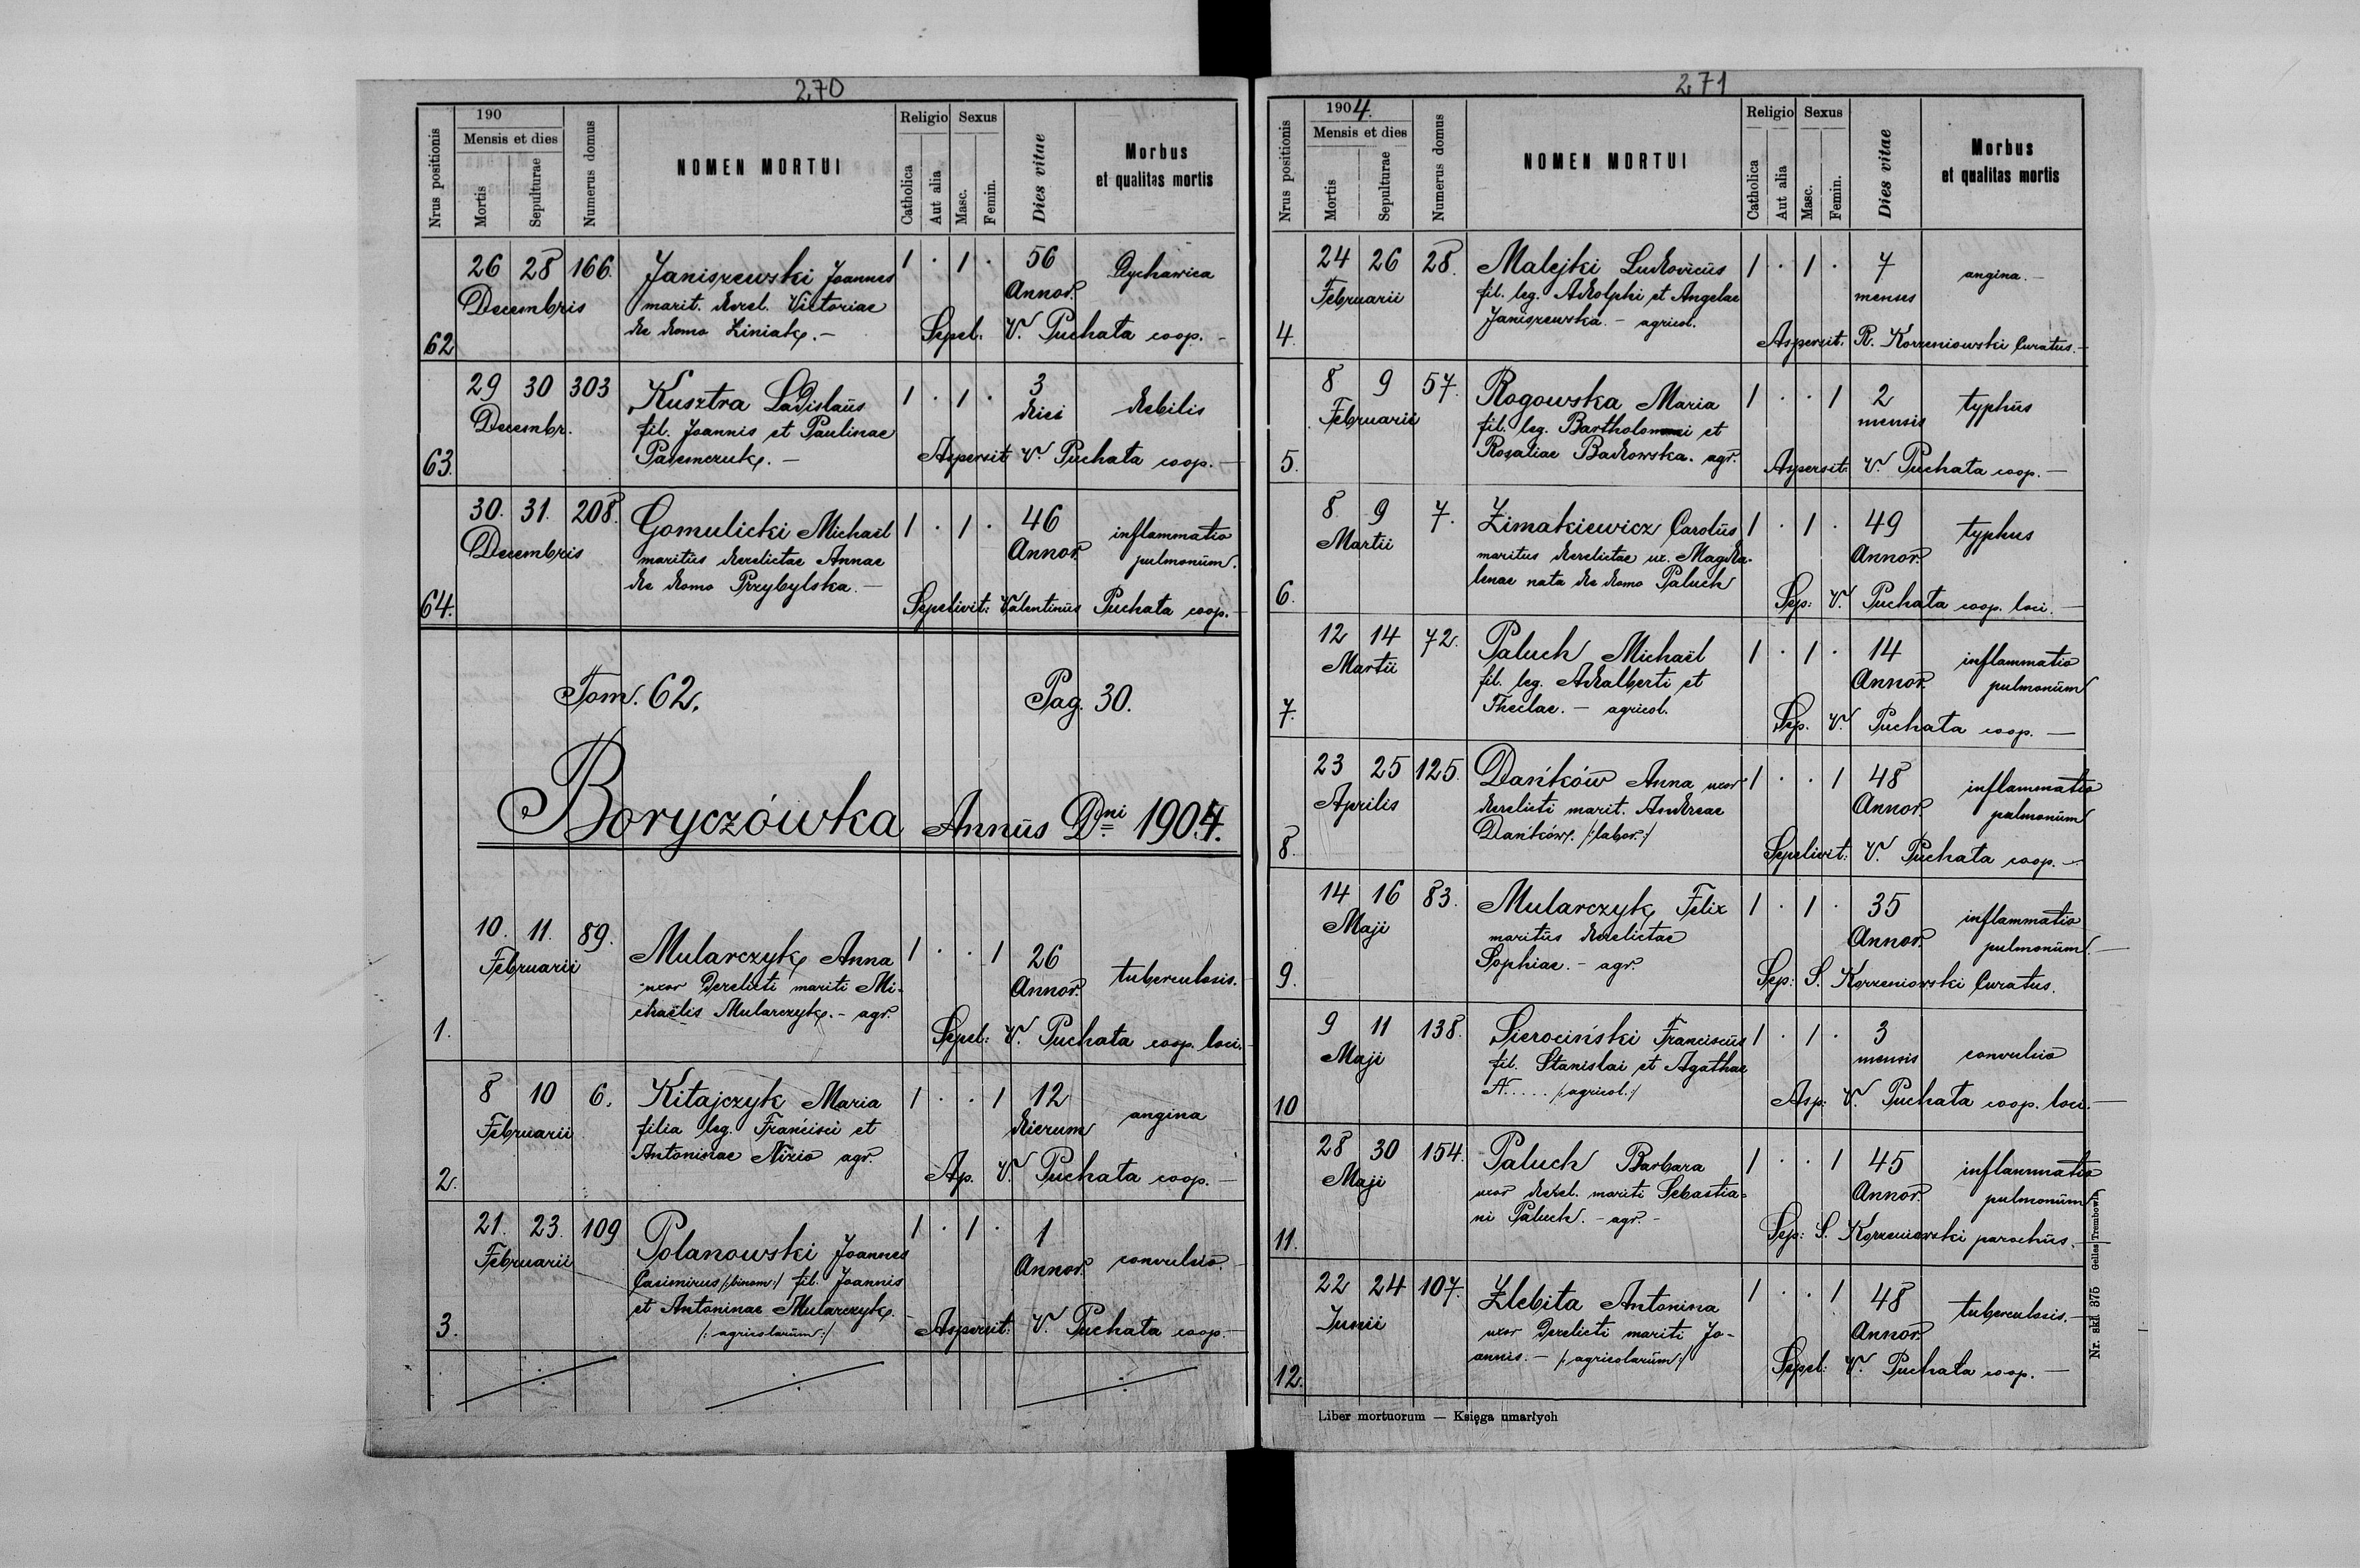 270
Nrus positionis
190
Mensis et dies
Mortis
Sepulturae
Numerus domus
NOMEN MORTUI
Religio
Catholica
Aut alia
Sexus
Masc.
Femin.
Dies vitae
Morbus
et qualitas mortis
62
26 28 166.
Decembris
Janiszewski Joannes
marit. derel. Victoriae
de domo Liniak. –
1 . 1 .
56
Annor.
Dychawica
Sepel. V. Puchata coop. –
63.
29 30 303
Decembr.
Kusztra Ladislaus
fil. Joannis et Paulinae
1 . 1 .
3
diei
debilis
Aspersit V. Puchata coop. –
64.
30. 31. 208.
Decembris
Gomulicki Michaël
maritus derelictae Annae
de domo Przybylska. –
1 . 1 .
46
Annor.
inflammatio
pulmonum.
Sepelivit: Valentinus Puchata coop. –
Tom. 62. Pag. 30.
Boryczówka Annus Dni 1904.
1.
10. 11. 89.
Februarii
Mularczyk Anna
uxor Derelicti mariti Mi-
chaëlis Mularczyk. – agr.
1 . . 1
26
Annor.
tuberculosis.
Sepel: V. Puchata coop. loci.
2.
8 10 6.
Februarii
Kitajczyk Maria
filia leg. Francisci et
Antoninae Nizio agr.
1 . . 1
12
dierum
angina
Ap. V. Puchata coop. –
3.
21. 23. 109
Februarii
Polanowski Joannes
Casimirus /:binom:/ fil. Joannis
et Antoninae Mularczyk. –
/: agricolarum :/
1 . 1 .
1
Annor.
convulsio. –
Aspersit: V. Puchata coop. –
271
Nrus positionis
1904.
Mensis et dies
Mortis
Sepulturae
Numerus domus
NOMEN MORTUI
Religio
Catholica
Aut alia
Sexus
Masc.
Femin.
Dies vitae
Morbus
et qualitas mortis
4.
24 26 28.
Februarii
Malejki Ludovicus
fil. leg. Adolphi et Angelae
Janiszewska. – agricol.
1 . 1 .
7
menses
angina. –
Aspersit: R. Korzeniowski Curatus. –
5.
8 9 57.
Februarii
Rogowska Maria
fil. leg. Bartholomaei et
Rosaliae Badowska. agr.
1 . . 1
2
mensis
typhus
Aspersit: V. Puchata coop. –
6.
8. 9 7.
Martii
Zimakiewicz Carolus
maritus derelictae ux. Magda-
lenae nata de domo Paluch
1 . 1 .
49
Annor.
typhus
Sep: V. Puchata coop. loci. –
7.
12 14 72.
Martii
Paluch Michaël
fil. leg. Adalberti et
Theclae. – agricol.
1 . 1 .
14
Annor.
inflammatio
pulmonum
Sep. V. Puchata coop. –
8.
23 25 125.
Aprilis
Dańków Anna uxor
derelicti marit. Andreae
Dańków. /:labor:/
1 . . 1
48
Annor.
inflammatio
pulmonum
Sepelivit: V. Puchata coop. –
9.
14 16 83.
Maji
Mularczyk Felix
maritus derelictae
Sophiae. – agr.
1 . 1 .
35
Annor.
inflammatio
pulmonum. –
Sep: S. Korzeniowski Curatus.
10
9 11 138.
Maji
Sierociński Franciscus
fil. Stanislai et Agathae
N..... /:agricol:/
1 . 1 .
3
mensis
convulsio
Asp: V. Puchata coop. loci. –
11.
28 30 154.
Maji
Paluch Barbara
uxor derel. mariti Sebastia=
ni Paluch. – agr. –
1 . . 1
45
Annor.
inflammatio
pulmonum
Sep: S. Korzeniowski parochus. –
12.
22 24 107.
Junii
Zlebita Antonina
uxor Derelicti mariti Jo-
annis. – /:agricolarum:/
1 . . 1
48
Annor.
tuberculosis. –
Sepel: V. Puchata coop. –
Liber mortuorum — Księga umarłych
Nr. skł 375 Gelles Trembowla